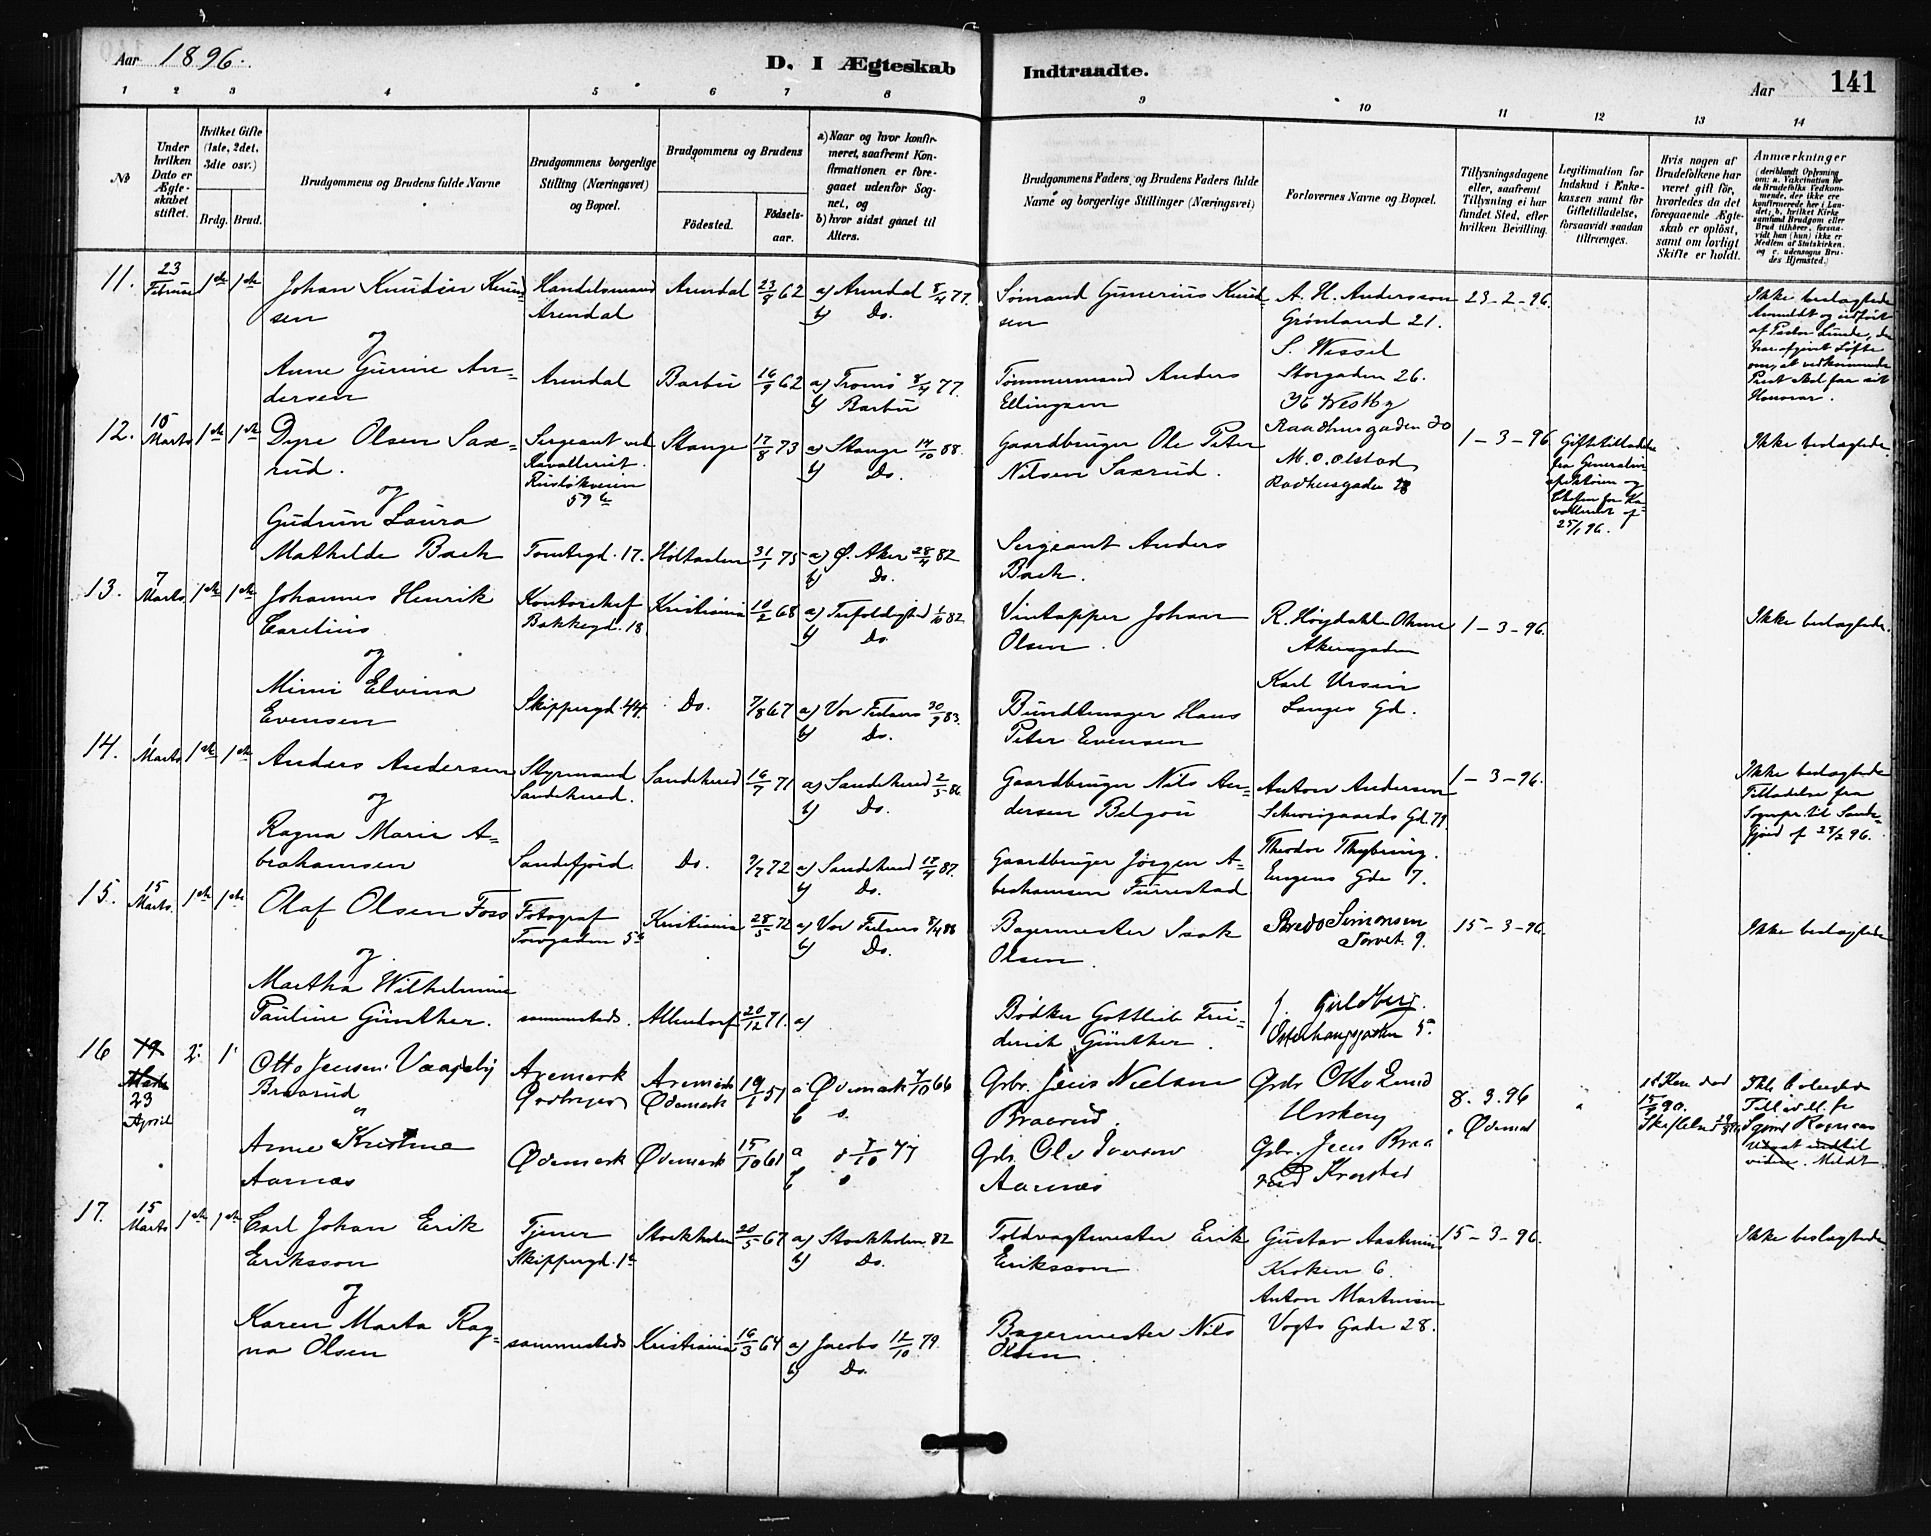 Aar 1896.
D. I Ægteskab
Indtraadte.
Aar
141
1 2 3 4 5 6 7 8 9 10 11 12 13 14
№
Under hvilken Dato er Ægteskabet stiftet.
Hvilket Gifte (1ste, 2det, 3die osv.)
Brdg. Brud.
Brudgommens og Brudens fulde Navne
Brudgommens borgerlige Stilling (Næringsvei) og Bopæl.
Brudgommens og Brudens
Fødested.
Fødsels-aar.
a) Naar og hvor konfirmeret, saafremt Konfirmationen er foregaaet udenfor Sognet, og
b) hvor sidst gaaet til Alters.
Brudgommens Faders og Brudens Faders fulde Navne og borgerlige Stillinger (Næringsvei)
Forlovernes Navne og Bopæl.
Tillysningsdagene eller, saafremt Tillysning ei har fundet Sted, efter hvilken Bevilling.
Legitimation for Indskud i Enkekassen samt for Giftetilladelse, forsaavidt saadan tiltrænges.
Hvis nogen af Brudefolkene har været gift før, hvorledes da det foregaaende Ægteskab er opløst, samt om lovligt Skifte er holdt.
Anmærkninger
(deriblandt Oplysning om: a. Vakcination for de Brudefolks Vedkommende, der ikke ere konfirmerede her i Landet; b. hvilket Kirkesamfund Brudgom eller Brud tilhører, forsaavidt han (hun) ikke er Medlem af Statskirken, og c. udensogns Brudes Hjemsted.)
11. 23 Februar 1ste 1ste Johan Knudin Knudsen Handelsmand Arendal Arendal 23/8 62 a) Arendal 8/4 77. b) Do.
Sømand Gunerius Knudsen A. H. Andersson Grønland 21. 23-2-96. Ikke beslægtede
S. Wessel Storgaden 26.
og
Anne Gurine Andersen Arendal Barbu 16/9 62 a) Tromø 8/4 77. b) Barbu
Tømmermand Anders Ellingsen
12. 15 Marts 1ste 1ste Dyre Olsen Saxrud. Sergeant ved Kavalleriet. 59b Stange 17/8 73 a) Stange 14/10 88. b) Do.
Gaardbruger Ole Peter Nilsen Saxrud. Raadhusgaden 30 1-3-96 Ikke beslægtede
M. O. Olstad Raadhusgaden 28
og
Gudrun Laura Mathilde Bach Tomtegd. 17. Holtaalen 31/1 75 a) Ø. Aker 28/4 82 b) Do.
Sergeant Anders Bach.
13. 7 Marts 1ste 1ste Johannes Henrik Carelius Kontorchef Bakkegd. 18 Kristiania 10/2 68 a) Trefoldighed 1/10 82 b) Do
Vintapper Johan Olsen. R. Høydahl Ohme Akersgaden 1-3-96. Ikke beslægtede.
og
Mimi Elvina Evensen Skippergd. 44. Do. 7/8 67 a) Vor Frelsers 30/9 83. b) Do.
Bundtmager Hans Peter Evensen Karl Ursin Langes Gd.
14. 1 Marts 1ste 1ste Anders Andersen Styrmand Sandeherred. Sandeherred 16/7 71 a) Sandeherred 2/5 86 b) Do.
Gaardbruger Nils Andersen Anton Andersen Schweigaards Gd. 79. 1-3-96. Ikke beslægtede Tilladelse fra Sognepr. til Sandefjord
og
Ragna Marie Abrahamsen Sandefjord. Do. 9/7 72 a) Sandeherred 18/4 87. b) Do.
Gaardbruger Jørgen Abrahamsen Furustad Theodor Thybring. Eugens Gde 7.
15. 15 Marts. 1ste 1ste Olaf Olsen Foss Fotograf Torvgaden 5a Kristiania 28/5 72 a) Vor Frelsers 8/4 88 b) Do.
Bagermester Isak Olsen. Bredo Simonsen Torvet 9. 15-3-96. Ikke beslægtede
og
Martha Wilhelmine Pauline Günther. sammesteds. Allendorf 20/12 71. a)
Bødker Gottlieb Friederich Günther. J. Guldberg. Østerhausgaden 5a
16 19 Marts 23 April 2. 1. Otto Jensen Vaagsby Braarud Aremark Aremark Ødemark 19/1 51 a Ødemark 7/10 66
Grbr. Jens Nielsen Braarud Grdbr Otto 8.3.96 Ødemark
"
Anne Kristine Aarnæs Ødemark Ødemark 15/10 61 a 7/10 77
Grbr. Ole Iverson Aarnæs Grbr. Jens Braarud
17. 15 Marts 1ste 1ste Carl Johan Erik Eriksson Tjener Skippergd. 1a Stockholm 20/5 67 a) Stockholm 82 b) Do.
Toldvagtmester Erik Eriksson Gustav Kroken 6. 15-3-96. Ikke beslægtede
og
Karen Marta Ragna Olsen sammesteds Kristiania 16/3 64 a) Jacobs 12/10 79. b) Do.
Bagermester Nils Olsen Anton Martinsen Vogts Gade 28.